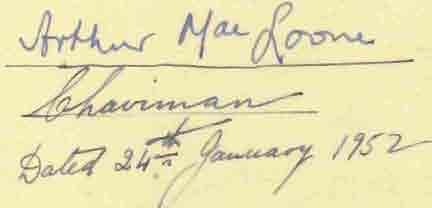 Arthur Mac Loone
Chairman
Dated 24th January 1952